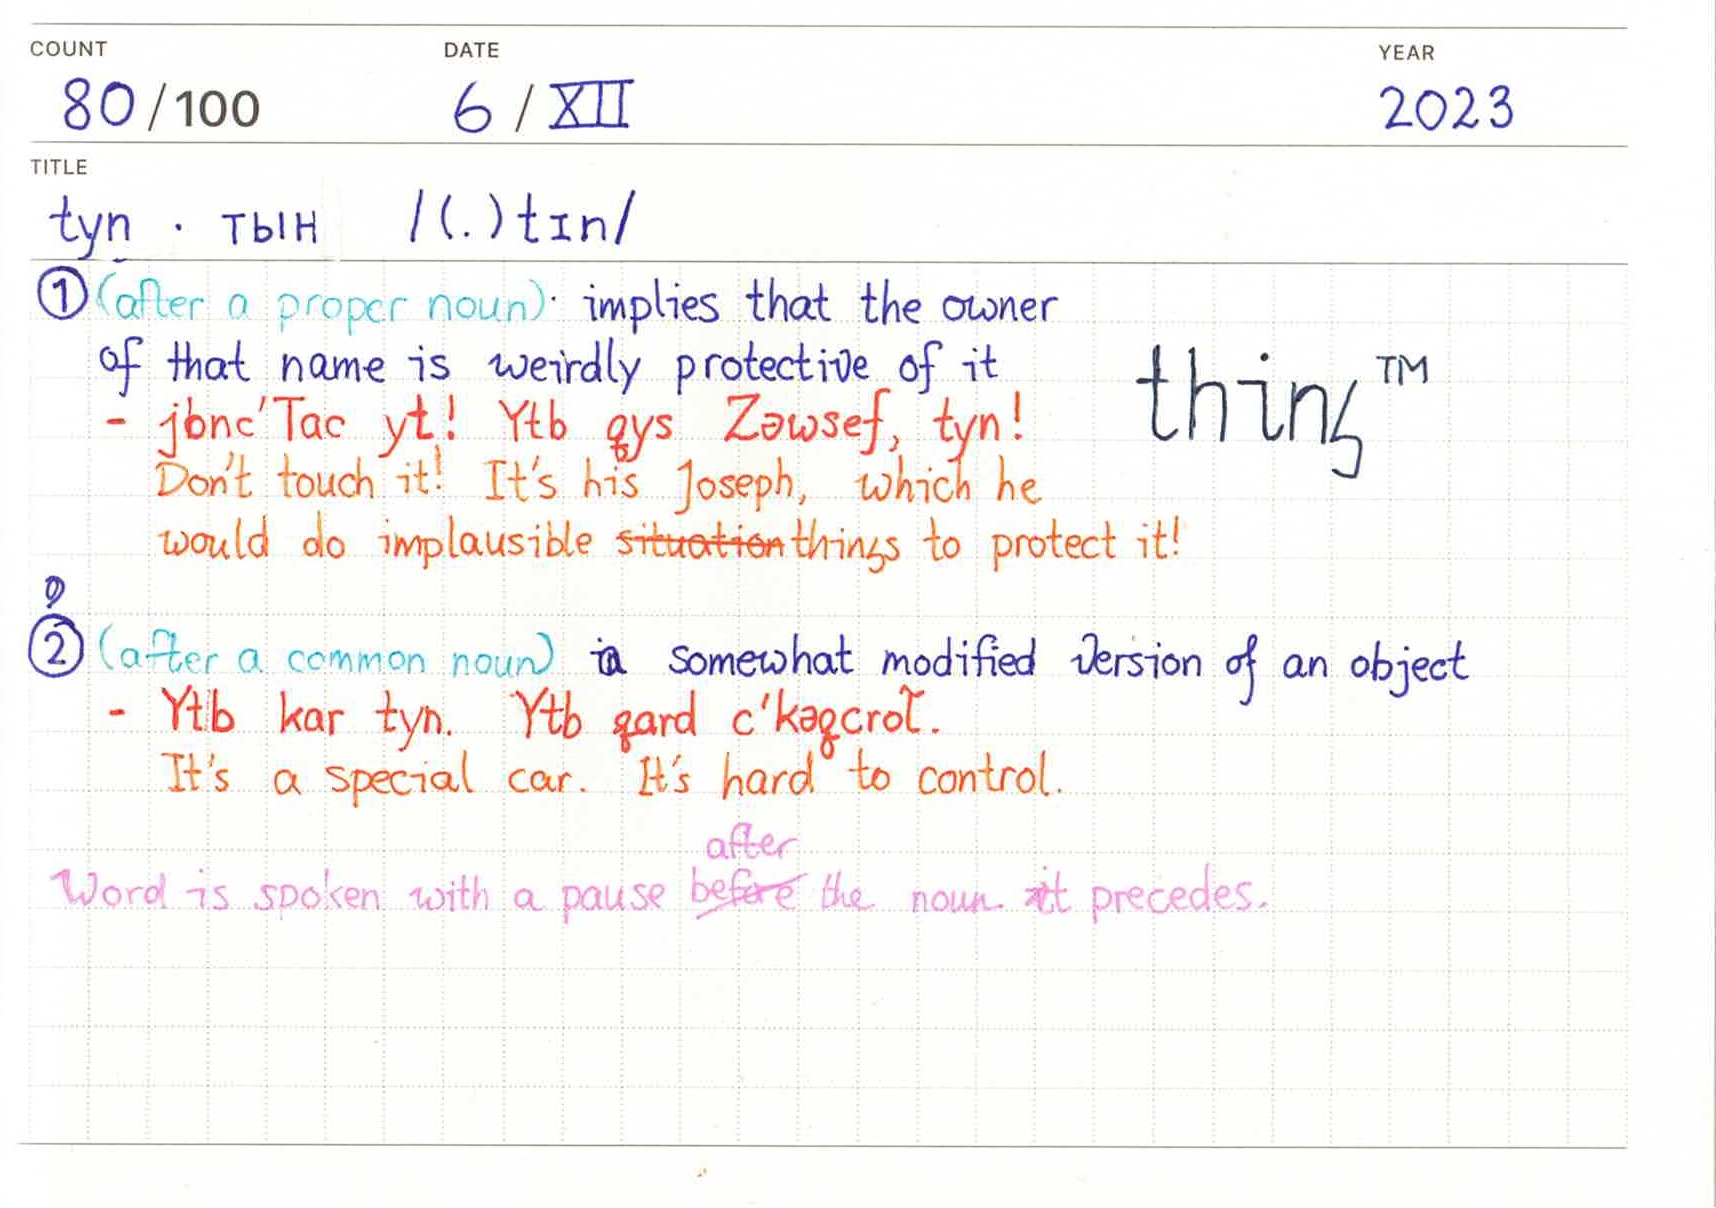 COUNT DATE YEAR
80/100 6/XII 2023
TITLE
tyn · тын /(.)tɪn/
① (after a proper noun) · implies that the owner
of that name is weirdly protective of it
thing™
- jbnc'Tac yt! Ytb gys Zəwsef, tyn!
Don't touch it! It's his Joseph, which he
would do implausible situation things to protect it!
② (after a common noun) a somewhat modified version of an object
- Ytb kar tyn. Ytb gard
It's a special car. It's hard to control.
after
Word is spoken with a pause before the noun it precedes.